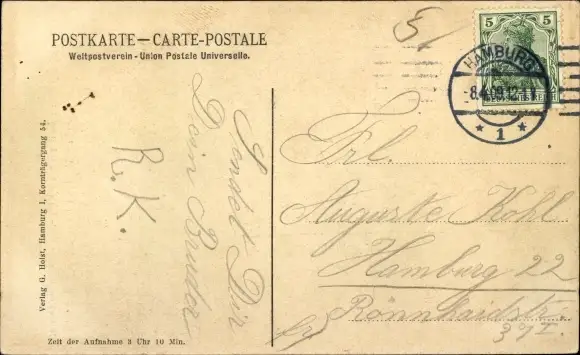 POSTKARTE—CARTE-POSTALE
Weltpostverein - Union Postale Universelle.
5
5 5
HAMBURG
-8.4.09.12-1
* 1 *
Verlag G. Holst, Hamburg 1, Kornträgergang 54.
Sendet Dir
Dein Bruder
R. K.
Frl.
Auguste Kohl
Hamburg 22
Rönnhaidstr.
Zeit der Aufnahme 3 Uhr 10 Min.